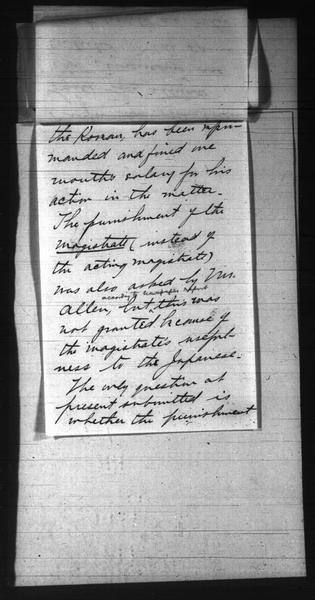 the Korean, has been repri-
manded and fined one
month's salary for his
action in the matter.
The punishment of the
magistrate (instead of
the acting magistrate)
was also asked by Mr.
according newspaper report
Allen, but this was
not granted because of
the magistrate's useful-
ness to the Japanese.
The only question at
present submitted is
whether the punishment